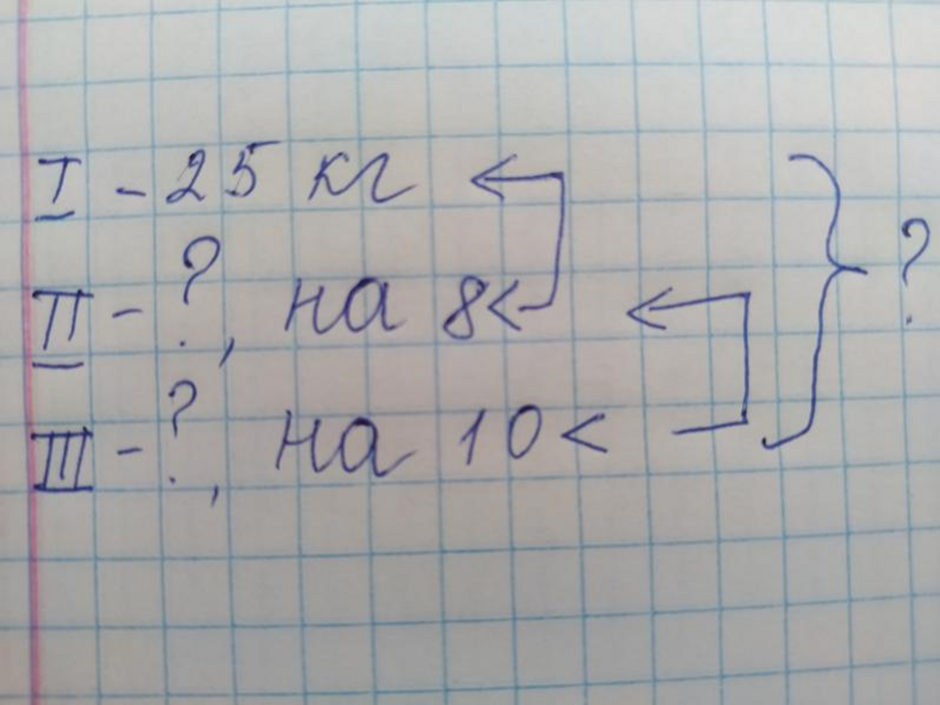 I - 25 кг
II - ?, на 8<
III - ?, на 10<
?